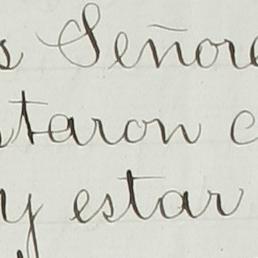 s Señore
staron c
y estar